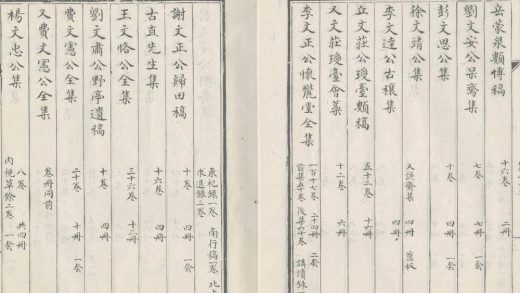 岳蒙泉類博稿 十六卷 二冊
劉文安公呆齋集 七卷 一冊
彭文思公集 十卷 二冊
徐文靖公集 又謙齋集 四冊 舊板
李文達公古穰集 四冊
丘文莊公瓊臺類稿 五十二卷 十六冊
又文莊瓊臺會稾 十二卷 六冊
李文正公懷麓堂全集 一百十七卷 二十四冊 二套
前集五十卷 後集六十卷 講讀錄一
東祀錄一卷 南行稿一卷 北上
求退錄三卷
謝文正公歸田稿 十卷 四冊 一套
古直先生集 十六卷 四冊
王文恪公全集 三十六卷 十二冊
劉文肅公野亭遺稿 十卷 四冊
費文憲公全集 二十卷 十冊 一套
又費文憲公全集 卷冊同前
楊文忠公集 八卷 共四冊 一套
內視草餘二卷